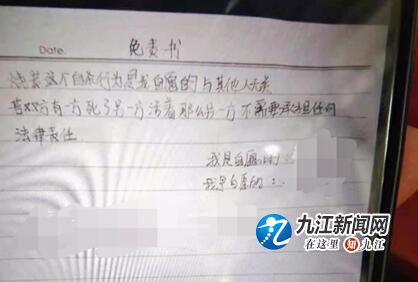 免责书
Date:
烧炭这个自杀行为是我自愿的与其他人无关
若双方有一方死了另一方活着那么另一方不需要承担任何
法律责任
我是自愿的:
我是自愿的:
九江新闻网
在这里知九江